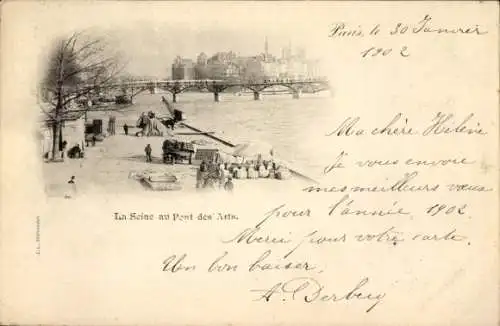 Paris, le 30 Janvier
1902
Ma chère Helene
Je vous envoie
mes meilleurs vœux
pour l'année, 1902.
Merci pour votre carte.
Un bon baiser
A. Derbecq
La Seine au Pont des Arts.